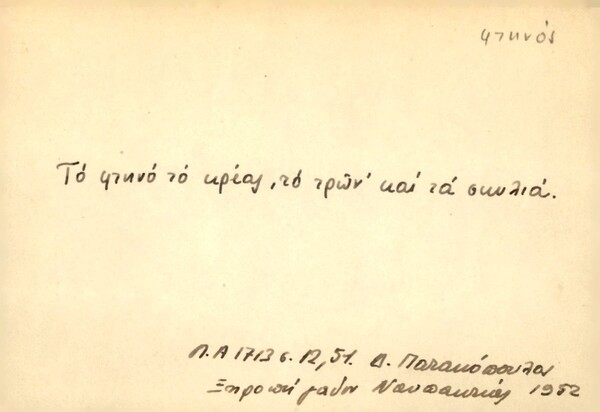 φτηνός
Τό φτηνό τό κρέας, τό τρῶν' καί τά σκυλιά.
Λ.Α 1713 σ. 12, 51. Δ. Παπακόπουλος
Ναυπακτίας 1952